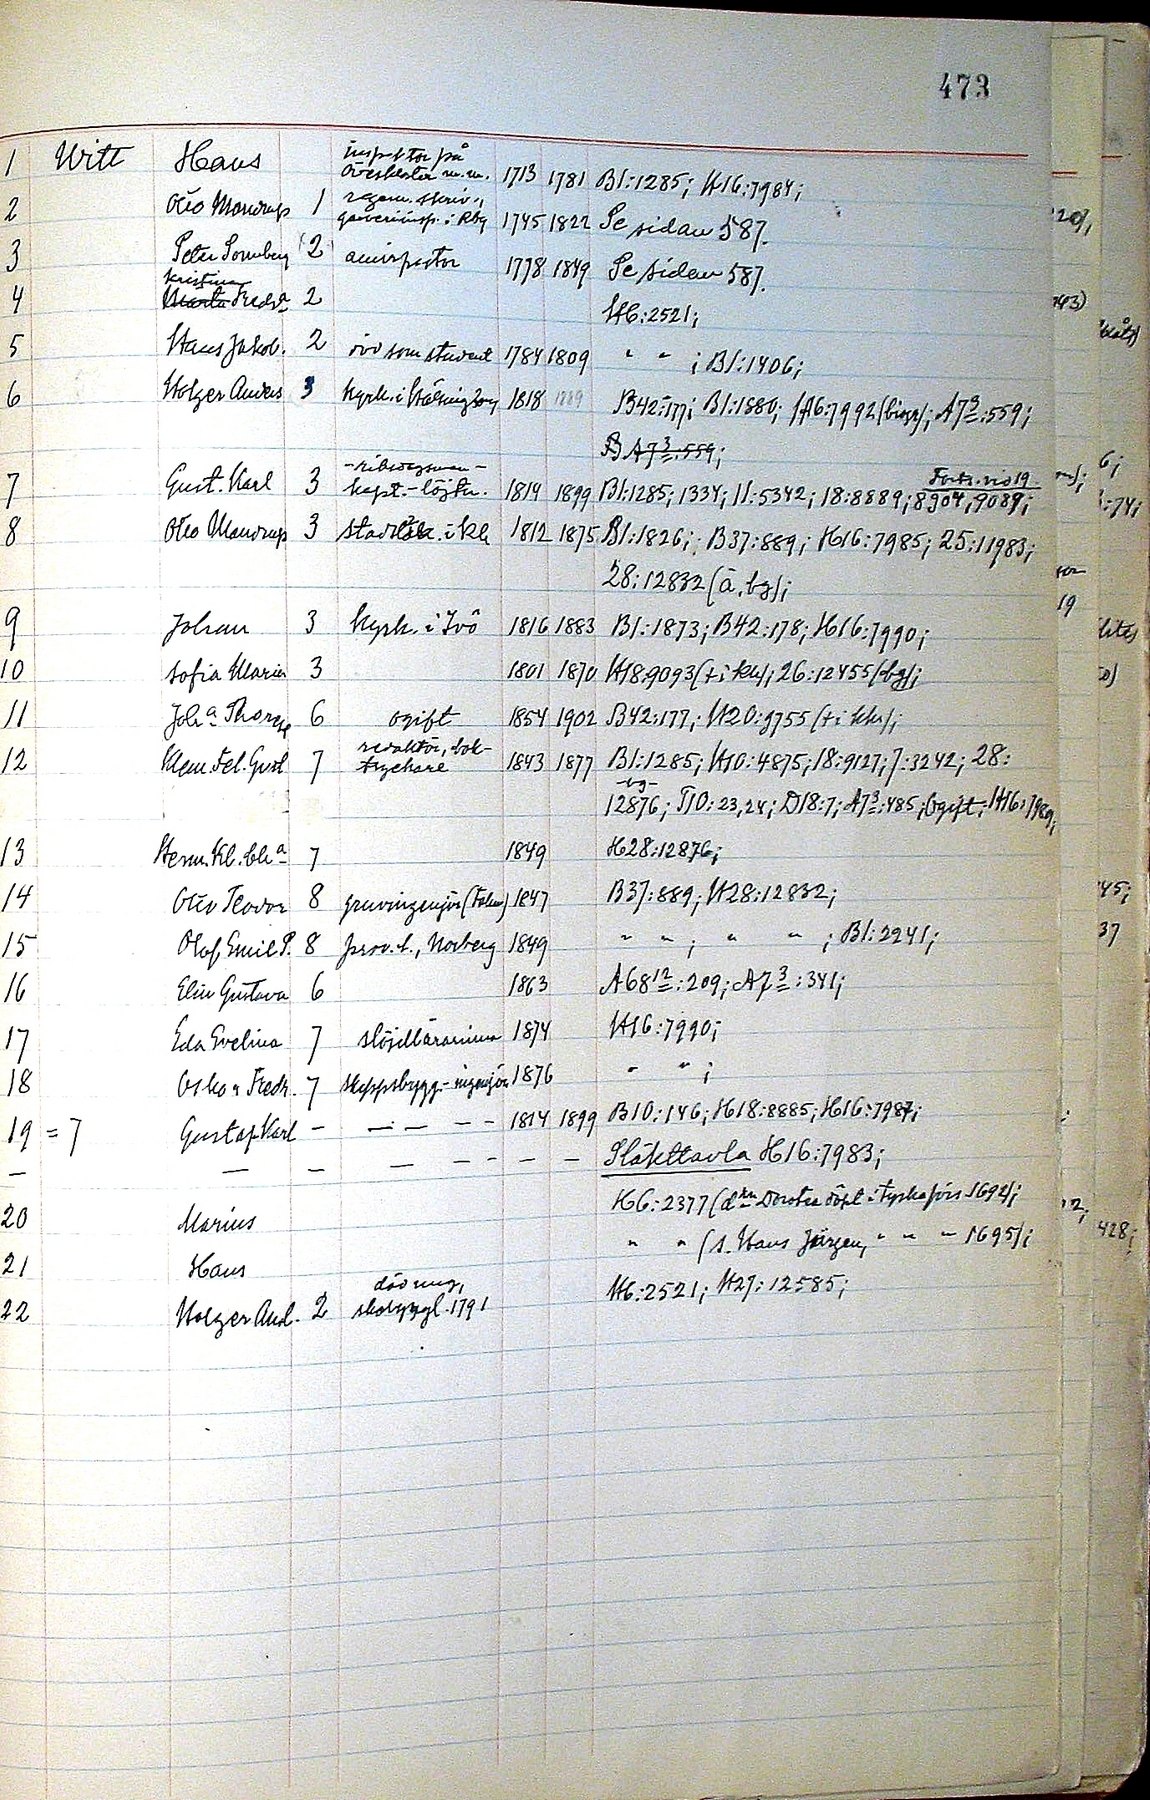 473
1 Witt Hans inspektor på Öveskloster m.m. 1713 1781 B1:1285; H16:7984;
2 Otto Mandrup 1 regem. skriv., 1745 1822 Se sidan 587.
3 Peter Sonnberg (2 amirpastor 1778 1849 Se sidan 587.
Kristina
4 Fredr 2 H6:2521;
5 Hans Jakob. 2 död som student 1784 1809 " " ; B1:1406;
6 Holger Anders 3 kyrk. i Hälsingborg 1818 1889 B42:177; B1:1880; H16:7992 (biogr); A7³:559;
B A7³:559;
7 Gust. Karl 3 -riksdagsman- kapt.-löjtn. 1814 1899 B1:1285, 1334, 11:5342; 18:8889; 8904, 9089; Forts. vid 19
8 Otto Mandrup 3 i Kh 1812 1875 B1:1826; B37:889; H16:7985; 25:11983;
28:12832 (å, bg);
9 Johan 3 kyrk. i Ivö 1816 1883 B1:1873; B42:178; H16:7990;
10 Sofia Maria 3 1801 1870 H18:9093 (+ i kh); 26:12455 (bg);
11 Joh:a 6 ogift 1854 1902 B42:177; H20:9755 (+ i khs);
12 Klem. Fel. Gust 7 redaktör, bok-tryckare 1843 1877 B1:1285; H10:4875; 18:9127; 7:3242; 28:
-bg-
12876; T10:23,24; D18:7; A7³:485; Ogift; H16:7989;
13 Herm. Kl. 7 1849 H28:12876;
14 Otto Teodor 8 gruvingenjör (Falun) 1847 B37:889; H28:12832;
15 Olof Emil P. 8 prov.l., Norberg 1849 " " ; " " ; B1:2241;
16 Elin Gustava 6 1863 A68¹²:209; A7³:341;
17 Eda Evelina 7 slöjdlärarinna 1874 H16:7990;
18 Oskar Fredr. 7 skeppsbygg.-ingenjör 1876 " " ;
19 = 7 Gustaf Karl - - - - - 1814 1899 B10:146; H18:8885; H16:7987;
— — — — — — — — Släkttavla H16:7983;
20 Marius H6:2377 (d:n Dorotea döpt i Tyska förs 1692);
21 Hans " " (s. Hans Jürgen, " " " 1695);
22 Holger And. 2 död ung, 1791 H6:2521; H27:12585;